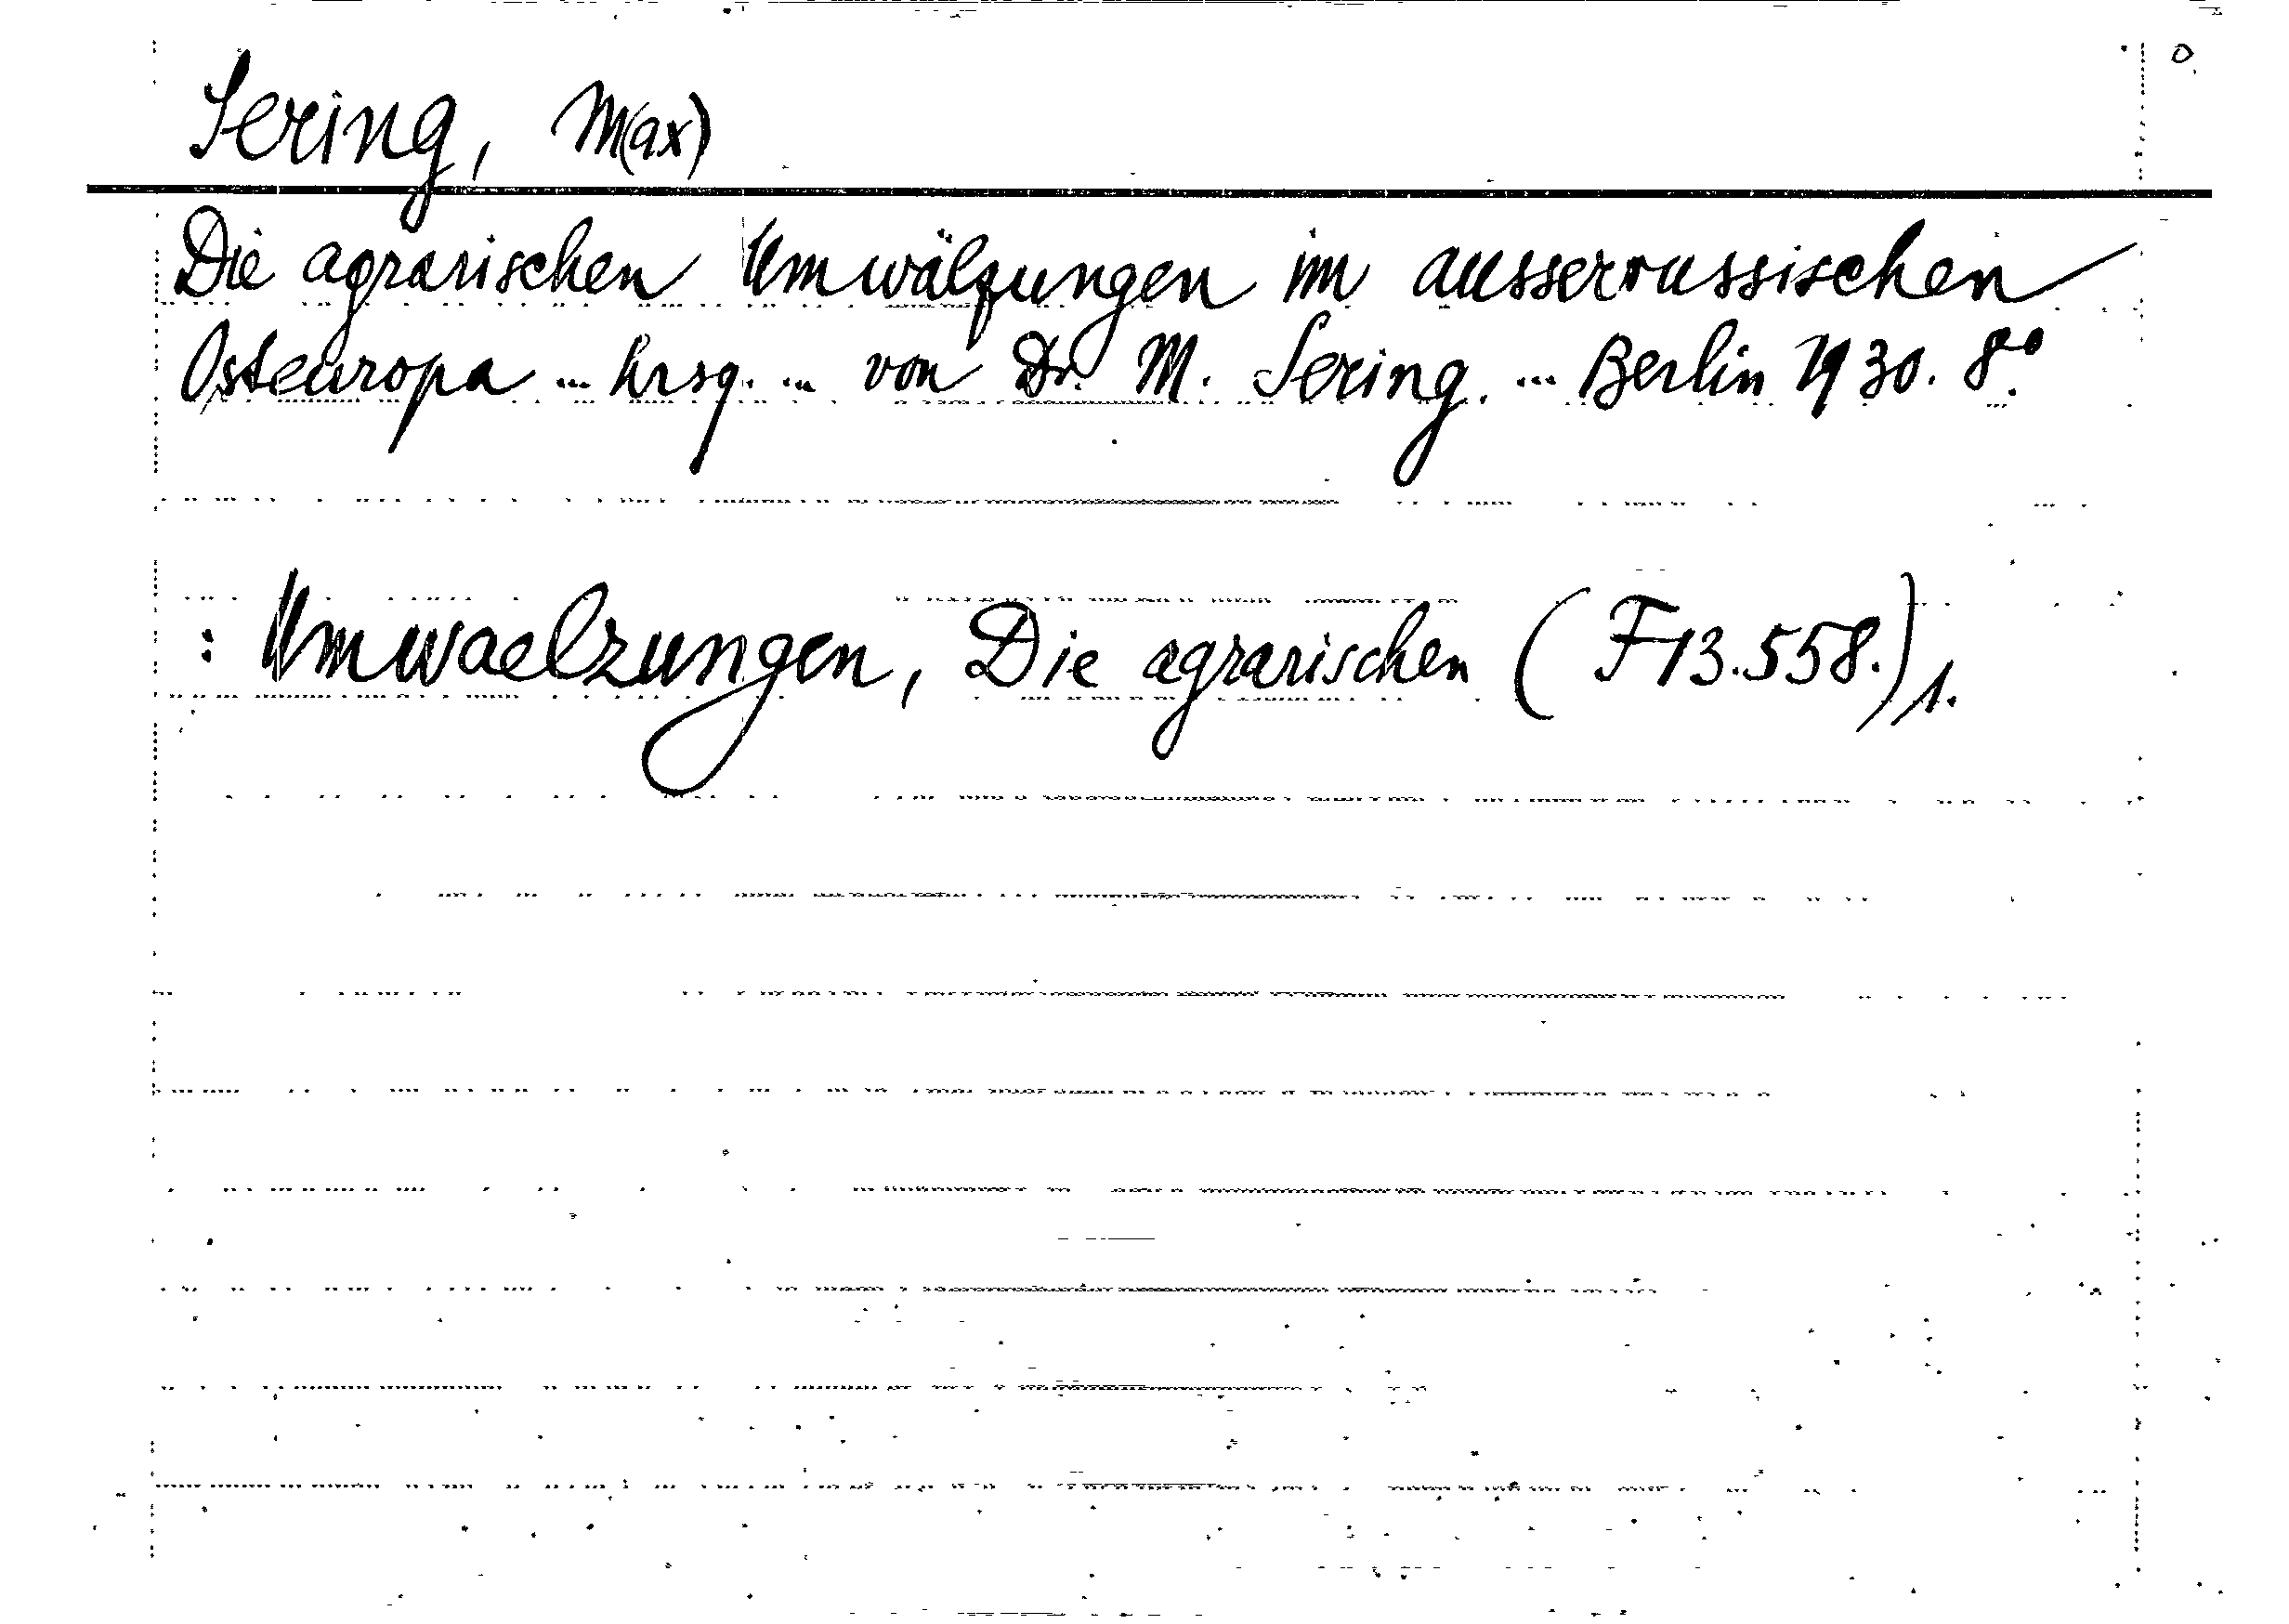 Sering, M(ax)
Die agrarischen Umwälzungen im ausserrussischen
Osteuropa ... hrsg. ... von Dr. M. Sering. ... Berlin 1930. 8°.
: Umwaelzungen, Die agrarischen (F13.558.) 1.